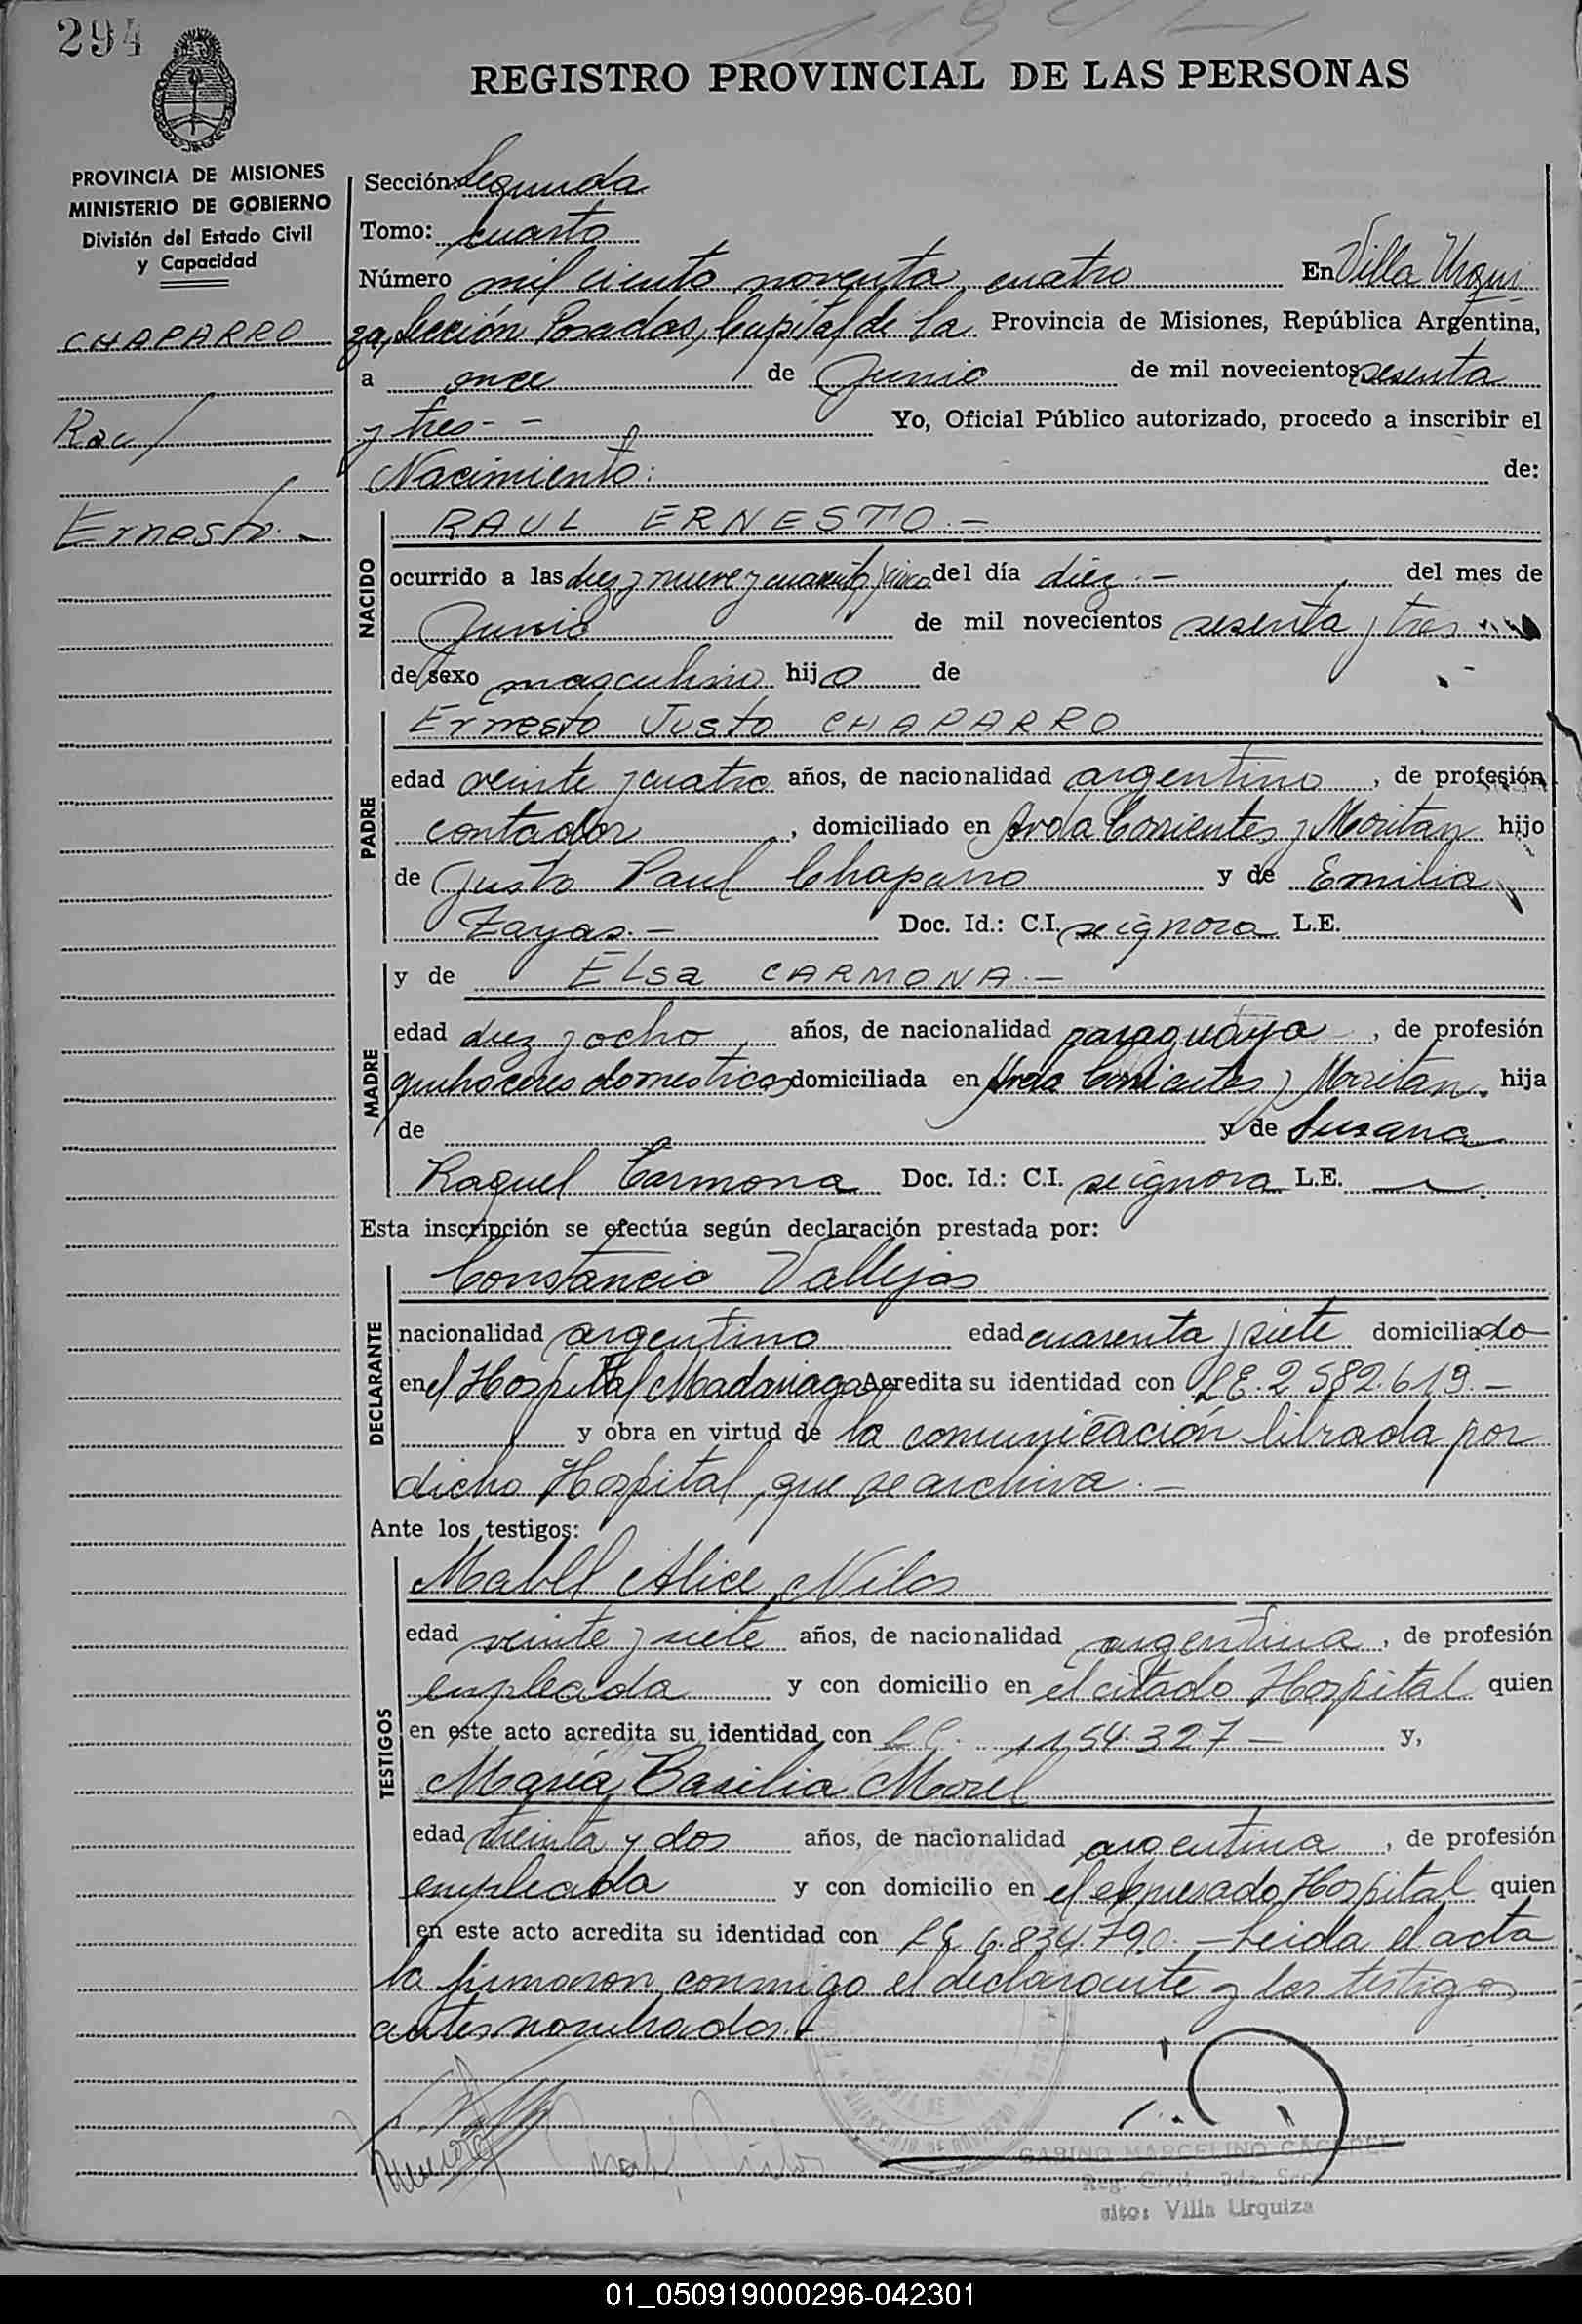 294
REGISTRO PROVINCIAL DE LAS PERSONAS
PROVINCIA DE MISIONES
MINISTERIO DE GOBIERNO
División del Estado Civil
y Capacidad
CHAPARRO
Raul
Ernesto.-
Sección: Segunda
Tomo: cuarto
Número mil ciento noventa y cuatro En Villa Urqui
za, Sección Posadas, Capital de la Provincia de Misiones, República Argentina,
a once de Junio de mil novecientos sesenta
y tres.- - Yo, Oficial Público autorizado, procedo a inscribir el
Nacimiento: de:
NACIDO
RAUL ERNESTO.-
ocurrido a las diez y nueve y cuarenta y cinco del día diez.- del mes de
Junio de mil novecientos sesenta y tres
de sexo masculino hijo de
PADRE
Ernesto Justo CHAPARRO
edad veinte y cuatro años, de nacionalidad argentino, de profesión
contador, domiciliado en Avda Corrientes y Moritan hijo
de Justo Paul Chaparro y de Emilia
Zayas.- Doc. Id.: C.I. se ignora L.E.
MADRE
y de ELsa CARMONA.-
edad diez y ocho años, de nacionalidad paraguaya, de profesión
quehaceres domesticos domiciliada en Avda Corrientes y Moritan. hija
de y de Susana
Raquel Carmona Doc. Id.: C.I. se ignora L.E. —
Esta inscripción se efectúa según declaración prestada por:
DECLARANTE
Constancio Vallejos
nacionalidad argentino edad cuarenta y siete domiciliado
en el Hospital Madariaga Acredita su identidad con LE. 2.582.619.-
y obra en virtud de la comunicación librada por
dicho Hospital, que se archiva.-
Ante los testigos:
TESTIGOS
Mabel Alice Nilos
edad veinte y siete años, de nacionalidad argentina, de profesión
empleada y con domicilio en el citado Hospital quien
en este acto acredita su identidad con LC. 1.154.327- y,
María Basilia Morel
edad treinta y dos años, de nacionalidad argentina, de profesión
empleada y con domicilio en el expresado Hospital quien
en este acto acredita su identidad con LC 6.834.790.- Leida el acta
la firmaron conmigo el declarante y los testigos
antes nombrados.
GABINO MARCELINO CACERES
Reg. Civil 2da. Sec.
sito: Villa Urquiza
01_050919000296-042301